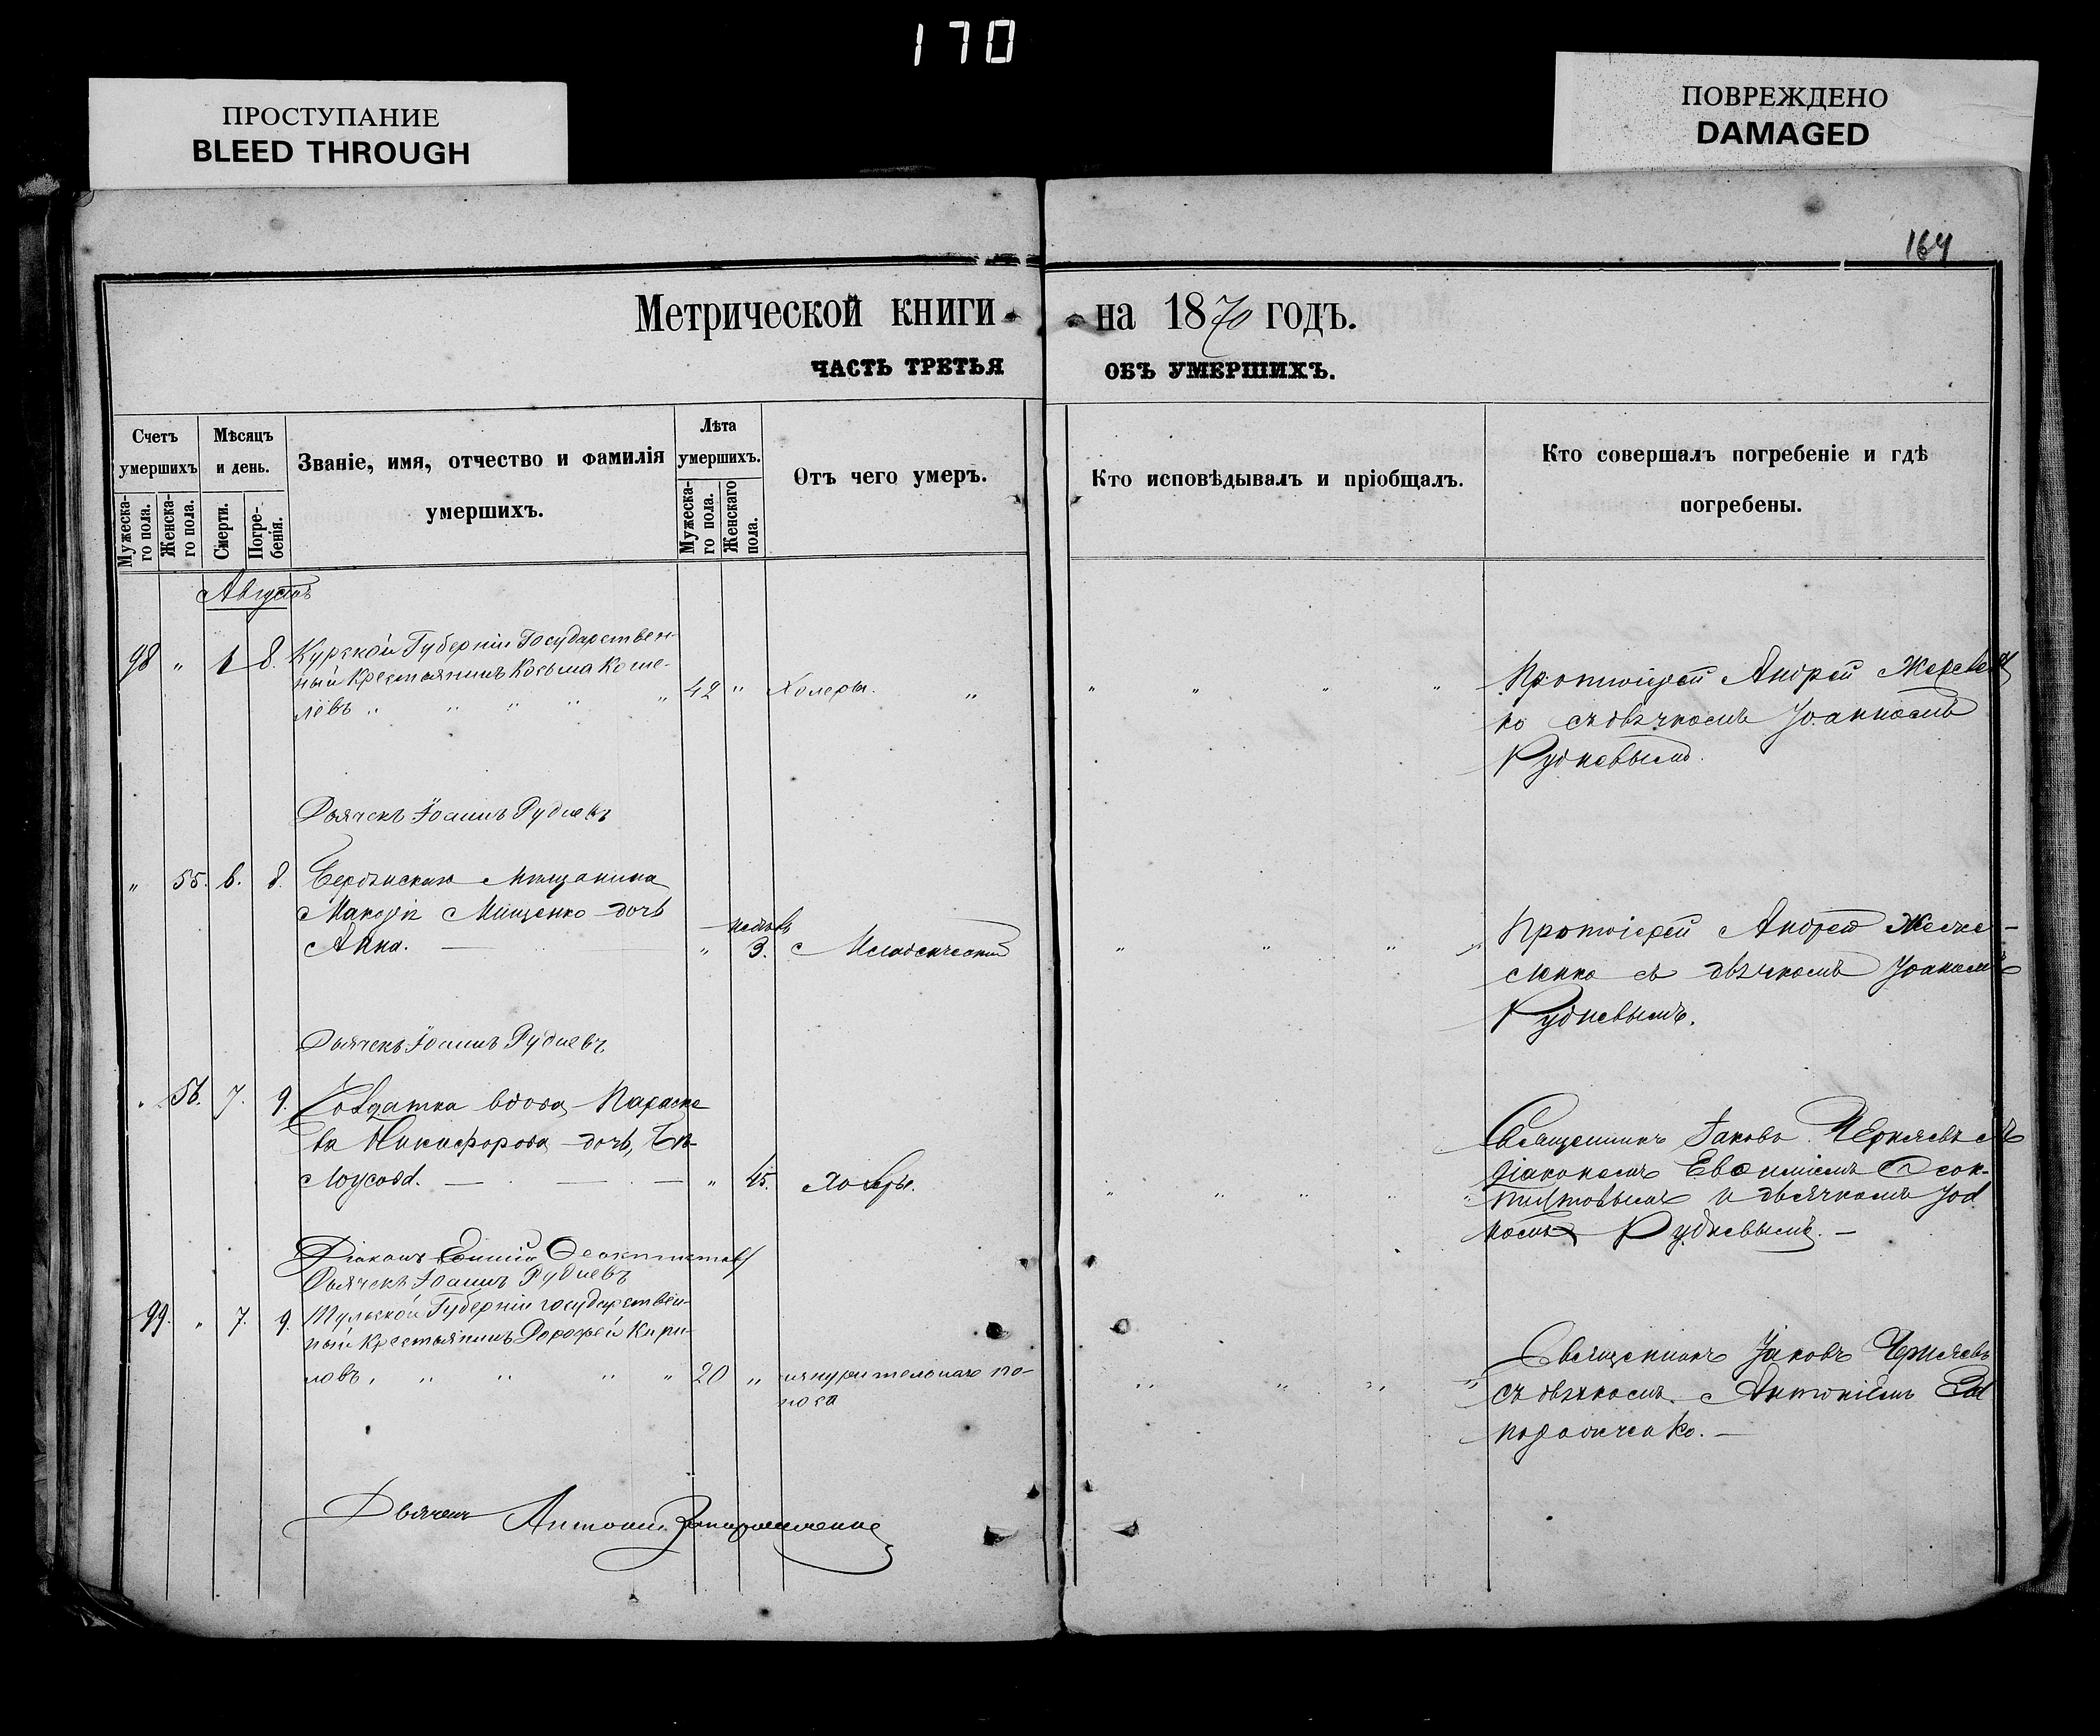 170
ПРОСТУПАНИЕ
BLEED THROUGH
ПОВРЕЖДЕНО
DAMAGED
164
Метрической книги на 1870 годъ.
ЧАСТЬ ТРЕТЬЯ ОБЪ УМЕРШИХЪ.
Счетъ умершихъ
Мужеска-
го пола.
Женска-
го пола.
Мѣсяцъ
и день.
Смерти.
Погре-
бенія.
Званіе, имя, отчество и фамилія
умершихъ.
Лѣта
умершихъ.
Мужеска-
го пола.
Женскаго
пола.
Отъ чего умеръ.
Кто исповѣдывалъ и пріобщалъ.
Кто совершалъ погребеніе и гдѣ
погребены.
Августъ
98 " 6 8. Курской Губерніи Государствен-
ный Крестьянинъ Козьма Коше-
левъ " " " " " 42 " Холеры. "
Протоіерей Андрей
ко съ дьячкомъ Іоанномъ
Рудневымъ.
Дьячекъ Іоаннъ Рудневъ
" 55. 6. 8. Бердянскаго Мѣщанина
Мищенко дочь
Анна. " 3. Младенческой
Протоіерей Андрей
съ дьячкомъ Іоанномъ
Рудневымъ.
Дьячекъ Іоаннъ Рудневъ
" 56. 7. 9. Солдатка вдова Параске-
ва Никифорова дочь, Бѣ-
лоусова. " 45. Холеры.
Священникъ Іаковъ Чернявъ съ
Діакономъ Евѳиміемъ Ѳеок-
тистовымъ и дьячкомъ Іоа
номъ Рудневымъ.
Діаконъ Евѳимій Ѳеоктистовъ
Дьячекъ Іоаннъ Рудневъ
99. " 7. 9. Тульской Губерніи государствен-
ный Крестьянинъ Дорофей Кири-
ловъ, " " " " 20 " изнурительнаго по-
носа
Священникъ Іаковъ Чернявъ
съ дьячкомъ Антоніемъ За
порожченко.
Дьячекъ Антоній Запорожченко